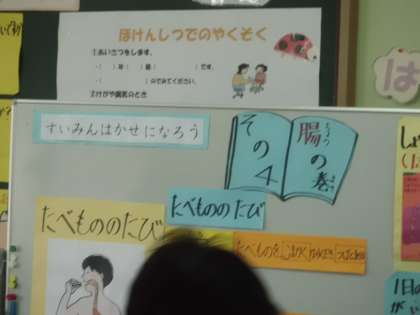 ほけんしつでのやくそく
①あいさつをします。
・( )年( )組( )です。
・( )のでみてください。
②けがや病気のとき
は
すいみんはかせになろう
その4
腸の巻
たべもののたび
たべもののたび
たべものを
1日の